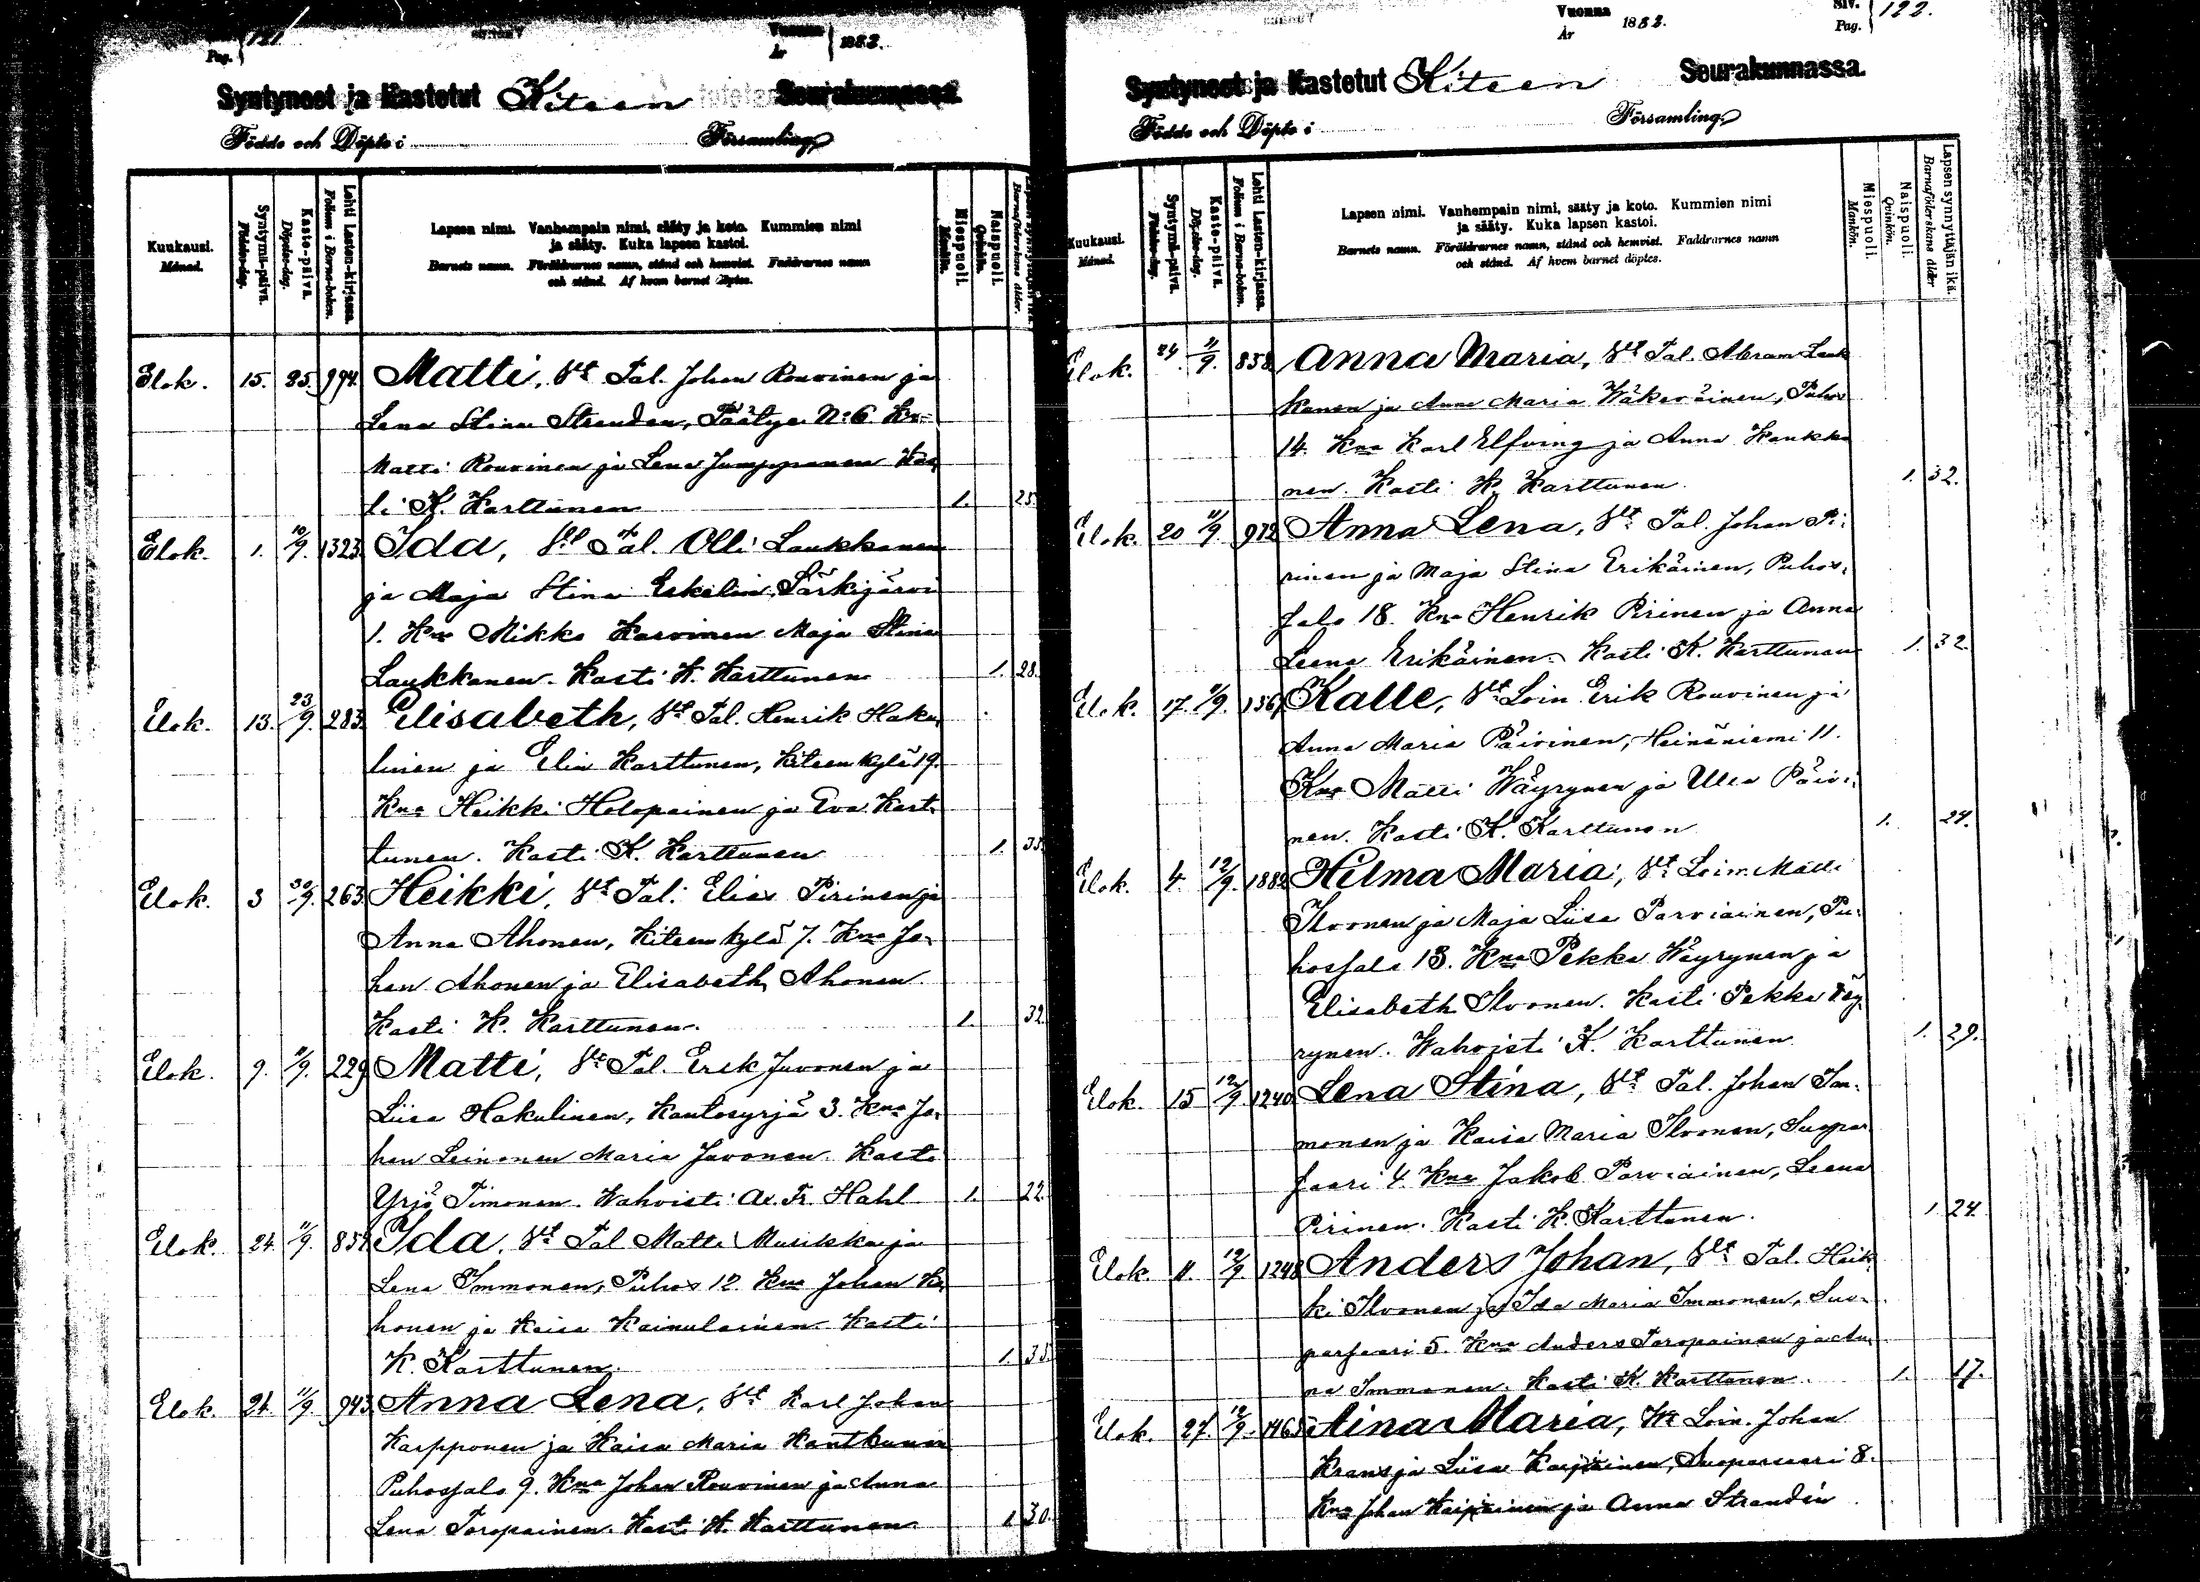 Pag. 121
Vuonna
År 1883.
Syntyneet ja Kastetut Kiteen Seurakunnassa.
Födde och Döpte i Församling,
Kuukausi.
Månad.
Syntymä-päivä.
Födelse-dag.
Kaste-päivä.
Döpelse-dag.
Lehti Lasten-kirjassa.
Folium i Barna-boken.
Lapsen nimi. Vanhempain nimi, sääty ja koto. Kummien nimi
ja sääty. Kuka lapsen kastoi.
Barnets namn. Föräldrarnes namn, stånd och hemvist. Faddrarnes namn
och stånd. Af hvem barnet döptes.
Miespuoli.
Mankön.
Naispuoli.
Qvinkön.
Lapsen synnyttäjän ikä.
Barnaföderskans ålder.
Elok. 15. 25. 994. Matti, Vt Tal. Johan Rouvinen ja
Lena Stina Stranden, Päätye No 6. Kna
Matti Rouvinen ja Lena Jumppanen Kas
ti K. Karttunen 1. 25.
Elok. 1. 10/9. 1323. Ida, Vt Tal. Olli Laukkanen
ja Maja Stina Eskelin, Särkijärvi
1. Kna Mikko Karvinen Maja Stina
Laukkanen. Kasti K. Karttunen 1. 28.
Elok. 13. 23/9. 283. Elisabeth, Vt Tal. Henrik Haku
linen ja Elin Karttunen, Kiteenkylä 19.
Kna Heikki Holopainen ja Eva Kart
tunen. Kasti K. Karttunen 1. 35.
Elok. 3 30/9. 263. Heikki, Vt Tal. Elias Pirinen ja
Anna Ahonen, Kiteenkylä 7. Kna Jo
han Ahonen ja Elisabeth Ahonen
Kasti K. Karttunen. 1. 32.
Elok. 9. 11/9. 229. Matti, Vt Tal. Erik Juvonen ja
Liisa Hakulinen, Kantosyrjä 3. Kna Jo
han Leinonen Maria Juvonen. Kasti
Yrjö Timonen. Wahvisti Ax. Fr. Hahl 1. 22.
Elok. 24. 11/9. 854. Ida, Vt Tal Matti Musikka ja
Lena Immonen, Puhos 12. Kna Johan Ka
honen ja Kaisa Kainulainen Kasti
K. Karttunen. 1. 35.
Elok. 21. 11/9. 943. Anna Lena, Vt Karl Johan
Karpponen ja Kaisa Maria Hantkunen
Puhossalo 9. Kna Johan Rouvinen ja Anna
Lena Toropainen. Kasti K. Karttunen 1. 30.
Vuonna
År 1883.
Siv.
Pag. 122.
Syntyneet ja Kastetut Kiteen Seurakunnassa.
Födde och Döpte i Församling,
Kuukausi.
Månad.
Syntymä-päivä.
Födelse-dag.
Kaste-päivä.
Döpelse-dag.
Lehti Lasten-kirjassa.
Folium i Barna-boken.
Lapsen nimi. Vanhempain nimi, sääty ja koto. Kummien nimi
ja sääty. Kuka lapsen kastoi.
Barnets namn. Föräldrarnes namn, stånd och hemvist. Faddrarnes namn
och stånd. Af hvem barnet döptes.
Miespuoli.
Mankön.
Naispuoli.
Qvinkön.
Lapsen synnyttäjän ikä.
Barnaföderskans ålder
Elok. 24. 11/9. 858. Anna Maria, Vt Tal. Abram Lauk
kanen ja Anna Maria Wäkeväinen, Puhos
14. Kna Karl Elfving ja Anna Kaukka
nen. Kasti K. Karttunen 1. 32.
Elok. 20 11/9. 972 Anna Lena, Vt Tal. Johan Pi
rinen ja Maja Stina Erikäinen, Puhos
salo 18. Kna Henrik Pirinen ja Anna
Leena Erikäinen. Kasti K. Karttunen 1. 32.
Elok. 17. 11/9. 1367. Kalle, Vt Loin Erik Rouvinen ja
Anna Maria Päivinen, Heinäniemi 11.
Kna Matti Wäyrynen ja Ulla Päivi
nen. Kasti K. Karttunen 1. 24.
Elok. 4. 12/9. 1882. Hilma Maria, Vt Loin. Matti
Ilvonen ja Maja Liisa Parviainen, Pu
hossalo 13. Kna Pekka Wäyrynen ja
Elisabeth Ilvonen. Kasti Pekka Väy
rynen. Wahvisti K. Karttunen 1. 29.
Elok. 15 12/9. 1240. Lena Stina, Vt Tal. Johan Im
monen ja Kaisa Maria Ilvonen, Suopar
saari 4. Kna Jakob Parviainen, Leena
Pirinen. Kasti K. Karttunen. 1. 24.
Elok. 11. 12/9. 1248. Anders Johan, Vt Tal. Heik
ki Ilvonen ja Ida Maria Immonen, Suo
parsaari 5. Kna Anders Toropainen ja An
na Immonen. Kasti K. Karttunen. 1. 17.
Elok. 27. 12/9. 1465. Aina Maria, Vt Loin. Johan
Krans ja Liisa Kaipiainen, Suoparsaari 8.
Kna Johan Kaipiainen ja Anna Strandén